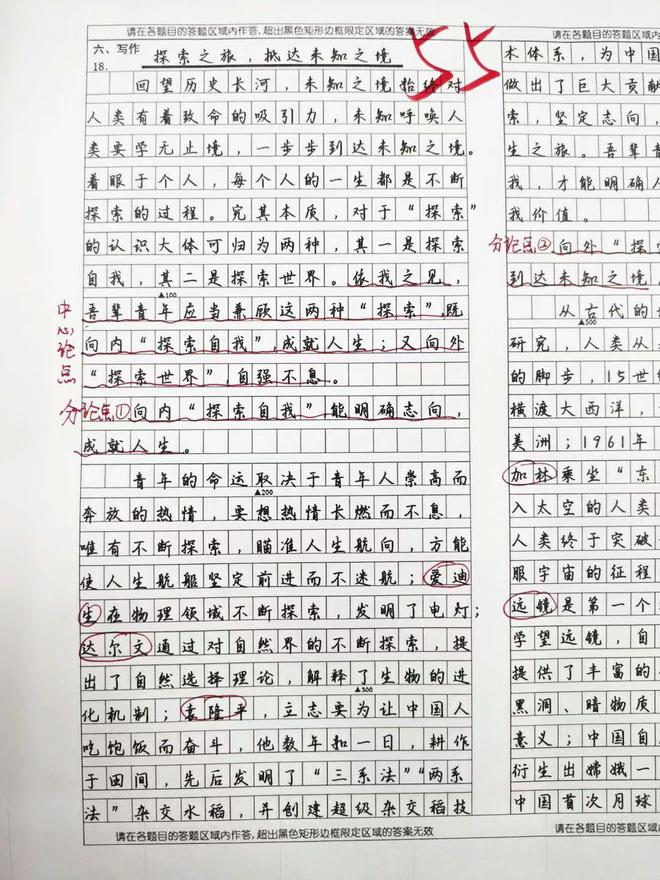 请在各题目的答题区域内作答,超出黑色矩形边框限定区域的答案无效
六、写作
18.
探索之旅，抵达未知之境
55
回望历史长河，未知之境始终对
人类有着致命的吸引力，未知呼唤人
类要学无止境，一步步到达未知之境。
着眼于个人，每个人的一生都是不断
探索的过程。究其本质，对于“探索”
的认识大体可归为两种，其一是探索
自我，其二是探索世界。依我之见，
▲100
中心论点
吾辈青年应当兼顾这两种“探索”，既
向内“探索自我”，成就人生；又向外
“探索世界”，自强不息。
分论点①向内“探索自我”，能明确志向，
成就人生。
青年的命运取决于青年人崇高而
▲200
奔放的热情，要想热情长燃而不息，
唯有不断探索，瞄准人生航向，方能
使人生航船坚定前进而不迷航；爱迪
生在物理领域不断探索，发明了电灯；
达尔文通过对自然界的不断探索，提
出了自然选择理论，解释了生物的进
▲300
化机制；袁隆平，立志要为让中国人
吃饱饭而奋斗，他数年如一日，耕作
于田间，先后发明了“三系法”“两系
法”杂交水稻，并创建超级杂交稻技
请在各题目的答题区域内作答,超出黑色矩形边框限定区域的答案无效
请在各题目的答题区域内
术体系，为中国
做出了巨大贡献
索，坚定志向，
生之旅。吾辈青
我，才能明确人
我价值。
分论点②向外“探
到达未知之境，
从古代的
▲500
研究，人类从
的脚步，15世
横渡大西洋，
美洲；1961年
加林乘坐“东
入太空的人类
人类终于突破
服宇宙的征程
远镜是第一个
学望远镜，自
提供了丰富的
黑洞、暗物质
意义；中国自
衍生出嫦娥一
中国首次月球
请在各题目的答题区域内作答,超出